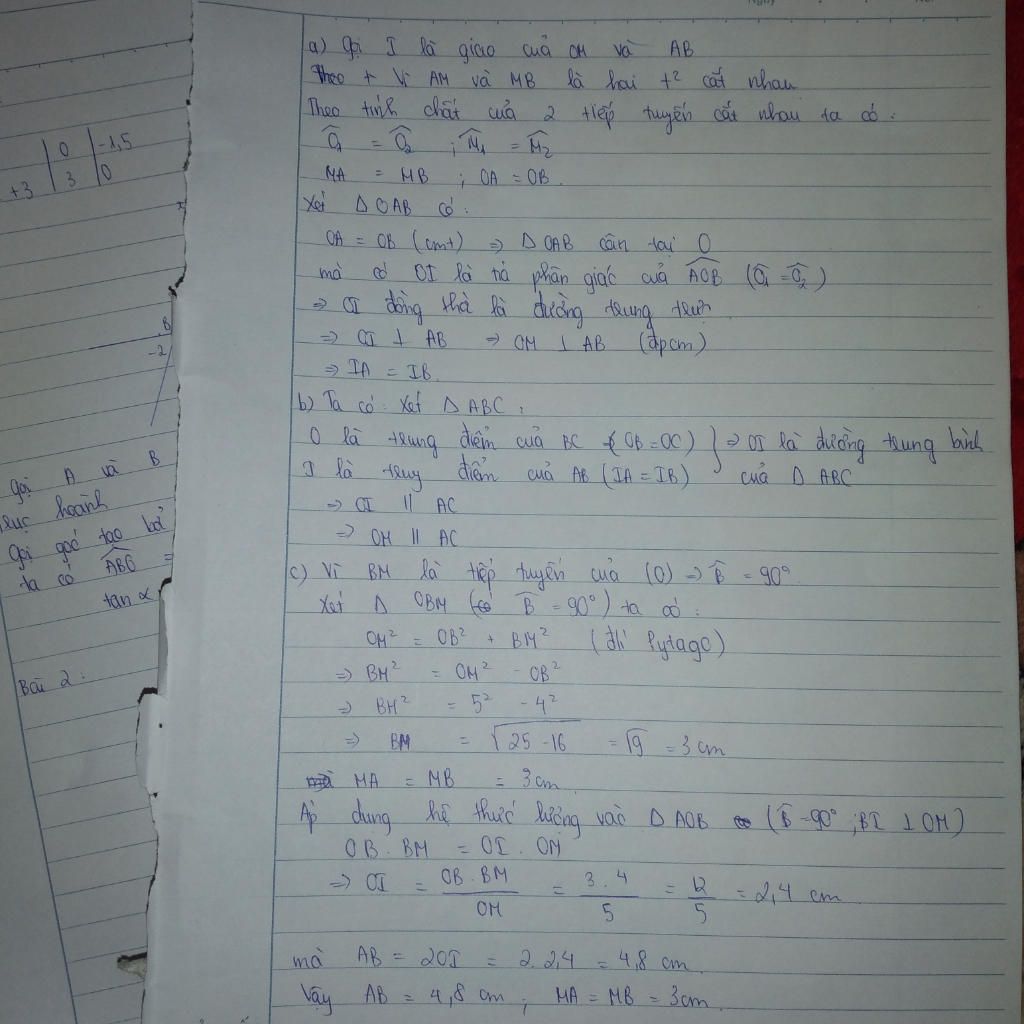 0 | -1,5
+3 | 3 | 0
B
-2
Gọi A và B
trục hoành
Gọi góc tạo bởi
ta có ABO =
tan α
Bài 2:
a) Gọi I là giao của OM và AB
Theo + Vì AM và MB là hai t² cắt nhau
Theo tính chất của 2 tiếp tuyến cắt nhau ta có:
Ô₁ = Ô₂ ; M̂₁ = M̂₂
MA = MB ; OA = OB.
Xét Δ OAB có:
OA = OB (cmt) => Δ OAB cân tại O
mà có OI là tia phân giác của AOB (Ô₁ = Ô₂)
=> OI đồng thời là đường trung trực
=> OI ⊥ AB => OM ⊥ AB (đpcm)
=> IA = IB.
b) Ta có: Xét Δ ABC:
O là trung điểm của BC (OB = OC) } => OI là đường trung bình
I là trug điểm của AB (IA = IB) của Δ ABC
=> OI || AC
=> OM || AC
c) Vì BM là tiếp tuyến của (O) => B̂ = 90°
Xét Δ OBM (có B̂ = 90°) ta có:
OM² = OB² + BM² (đlí Pytago)
=> BM² = OM² - OB²
=> BM² = 5² - 4²
=> BM = √25 - 16 = √9 = 3 cm
MA = MB = 3 cm
Áp dụng hệ thức lượng vào Δ AOB (B̂ = 90°; BI ⊥ OM)
OB . BM = OI . OM
=> OI = OB . BM / OM = 3 . 4 / 5 = 12 / 5 = 2,4 cm
mà AB = 2OI = 2. 2,4 = 4,8 cm.
Vậy AB = 4,8 cm; MA = MB = 3cm